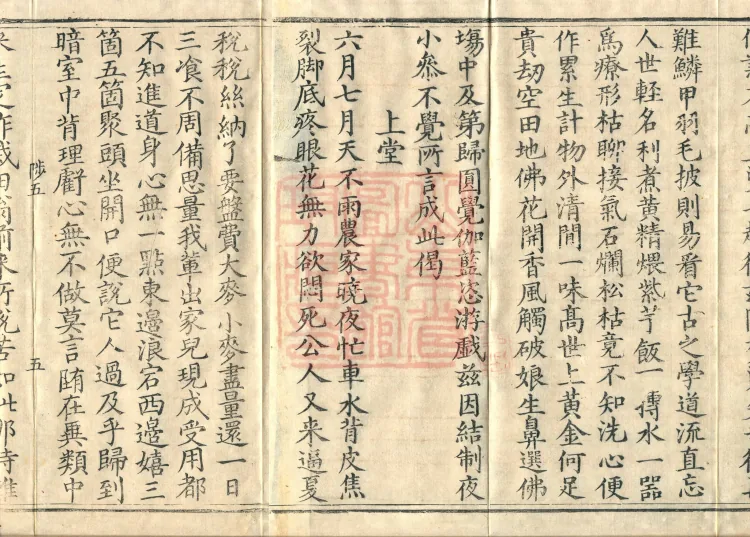 難鱗甲羽毛披則易看它古之學道流直忘
人世輕名利煮黃精煨紫芋飯一摶水一器
為療形枯聊接氣石爛松枯竟不知洗心便
作累生計物外清閒一味高世上黃金何足
貴劫空田地佛花開香風觸破娘生鼻選佛
塲中及第歸圓覺伽藍恣游戲茲因結制夜
小叅不覺所言成此偈
上堂
六月七月天不雨農家曉夜忙車水背皮焦
裂脚底疼眼花無力欲悶死公人又来逼夏
稅稅絲納了要盤費大麥小麥盡量還一日
三飡不周備思量我輩出家兒現成受用都
不知進道身心無一點東邊浪宕西邊嬉三
箇五箇聚頭坐開口便說它人過及乎歸到
暗室中背理虧心無不做莫言墮在異類中
陟五 五